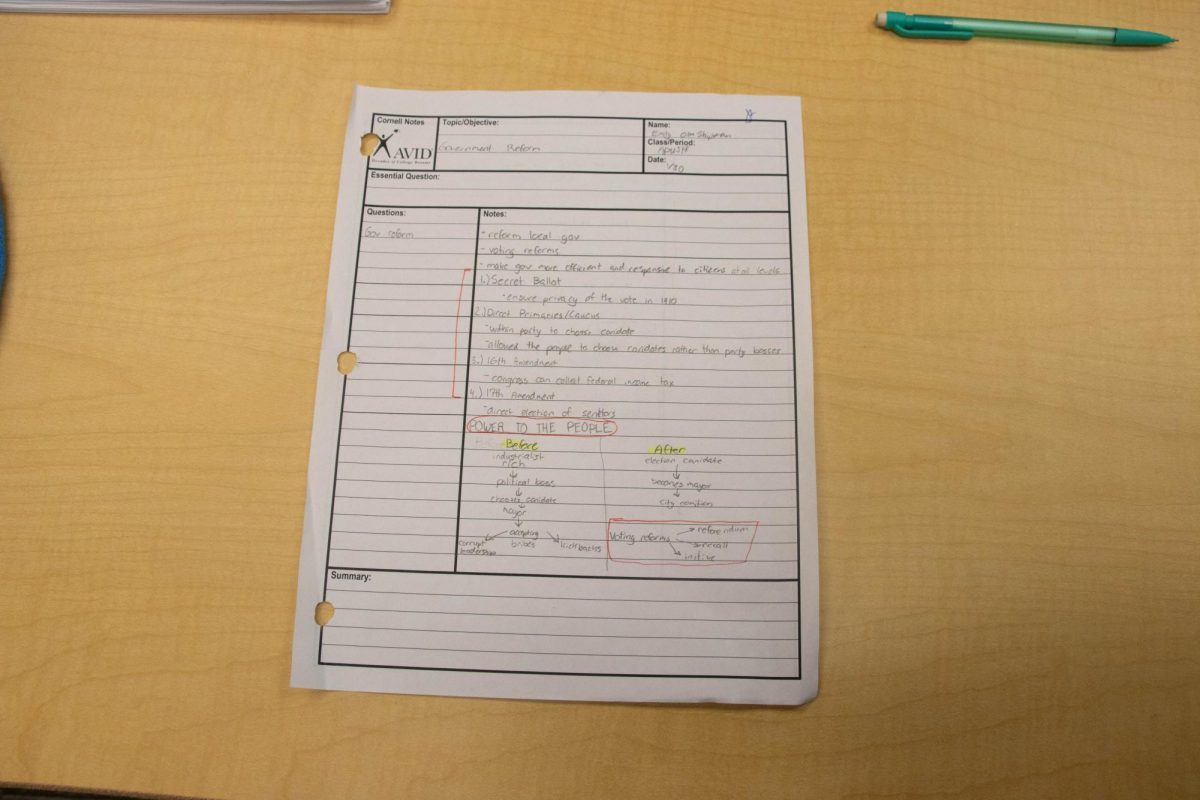 Cornell Notes
AVID
Decades of College Dreams
Topic/Objective:
Government Reform
Name:
Emily
Class/Period:
APUSH
Date:
1/30
Essential Question:
Questions:
Gov reform
Notes:
- reform local gov
- voting reforms
- make gov more efficient and responsive to citizens at all levels
1.) Secret Ballot
- ensure privacy of the vote in 1910
2.) Direct Primaries/Caucus
- within party to choose canidate
- allowed the people to choose canidates rather than party bosses
3.) 16th Amendment
- congress can collect federal income tax
4.) 17th Amendment
- direct election of senators
POWER TO THE PEOPLE
Before
industrialist
rich
political boss
chooses canidate
mayor
accepting
bribes
corrupt
leadership
kickbacks
After
election canidate
becomes mayor
city
Voting reforms
referendum
recall
initive
Summary: